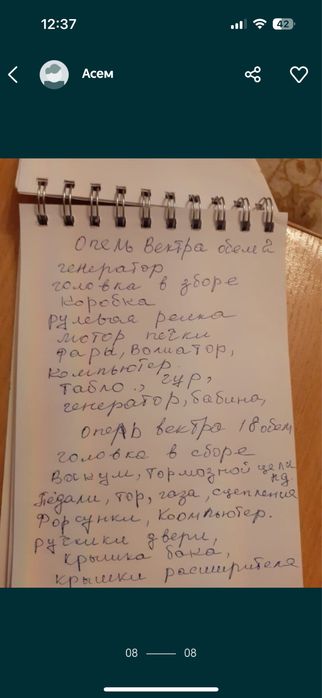 12:37
42
Асем
Опель Вектра обем
генератор
головка в зборе
коробка
рулевая рейка
мотор печки
фары, Волиатор,
компьютер.
табло., гур,
генератор, бабина,
Опель вектра 18 обем
головка в сборе
Вакум, тормозной
Педали, тор, газа, сцепления
Форсунки, Коомпьютер.
ручкики двери,
крышка бака,
крышки расширителя
08 08